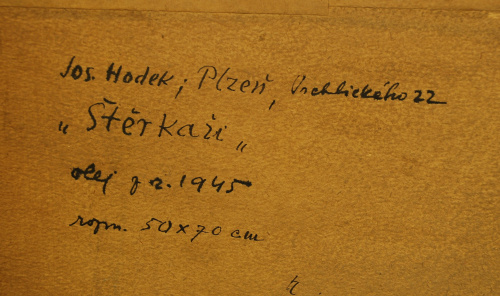 Jos. Hodek; Plzeň, Vrchlického 22
„Štěrkaři„
olej z r. 1945
rozm. 50x70 cm